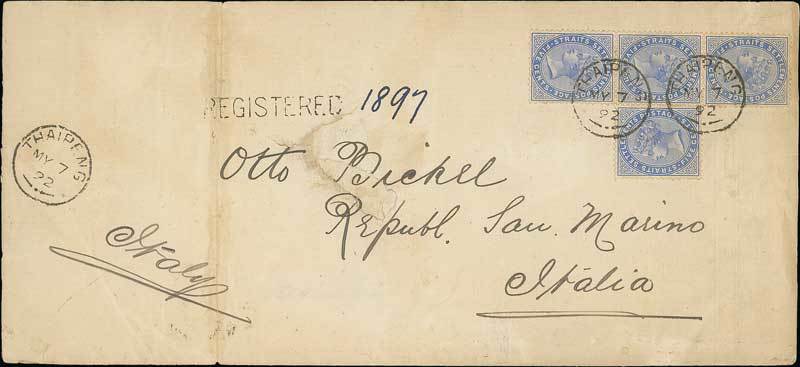 STRAITS SETTLEMENTS POSTAGE FIVE CENTS
STRAITS SETTLEMENTS POSTAGE FIVE CENTS
STRAITS SETTLEMENTS POSTAGE FIVE CENTS
STRAITS SETTLEMENTS POSTAGE FIVE CENTS
THAIPENG
MY 7
92
THAIPENG
MY 7
92
REGISTERED 1897
THAIPENG
MY 7
92
Otto Bickel
Republ. San Marino
Itália
Italy